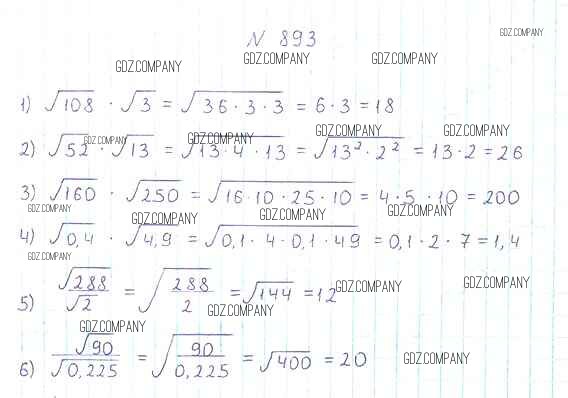 N 893
GDZ.COMPANY
GDZ.COMPANY GDZ.COMPANY GDZ.COMPANY
1) √108 · √3 = √36 · 3 · 3 = 6 · 3 = 18
GDZ.COMPANY GDZ.COMPANY GDZ.COMPANY GDZ.COMPANY
2) √52 · √13 = √13 · 4 · 13 = √13² · 2² = 13 · 2 = 26
3) √160 · √250 = √16 · 10 · 25 · 10 = 4 · 5 · 10 = 200
GDZ.COMPANY GDZ.COMPANY GDZ.COMPANY GDZ.COMPANY
4) √0,4 · √4,9 = √0,1 · 4 · 0,1 · 49 = 0,1 · 2 · 7 = 1,4
GDZ.COMPANY
5) √288 / √2 = √288 / 2 = √144 = 12
GDZ.COMPANY GDZ.COMPANY
GDZ.COMPANY GDZ.COMPANY
6) √90 / √0,225 = √90 / 0,225 = √400 = 20
GDZ.COMPANY